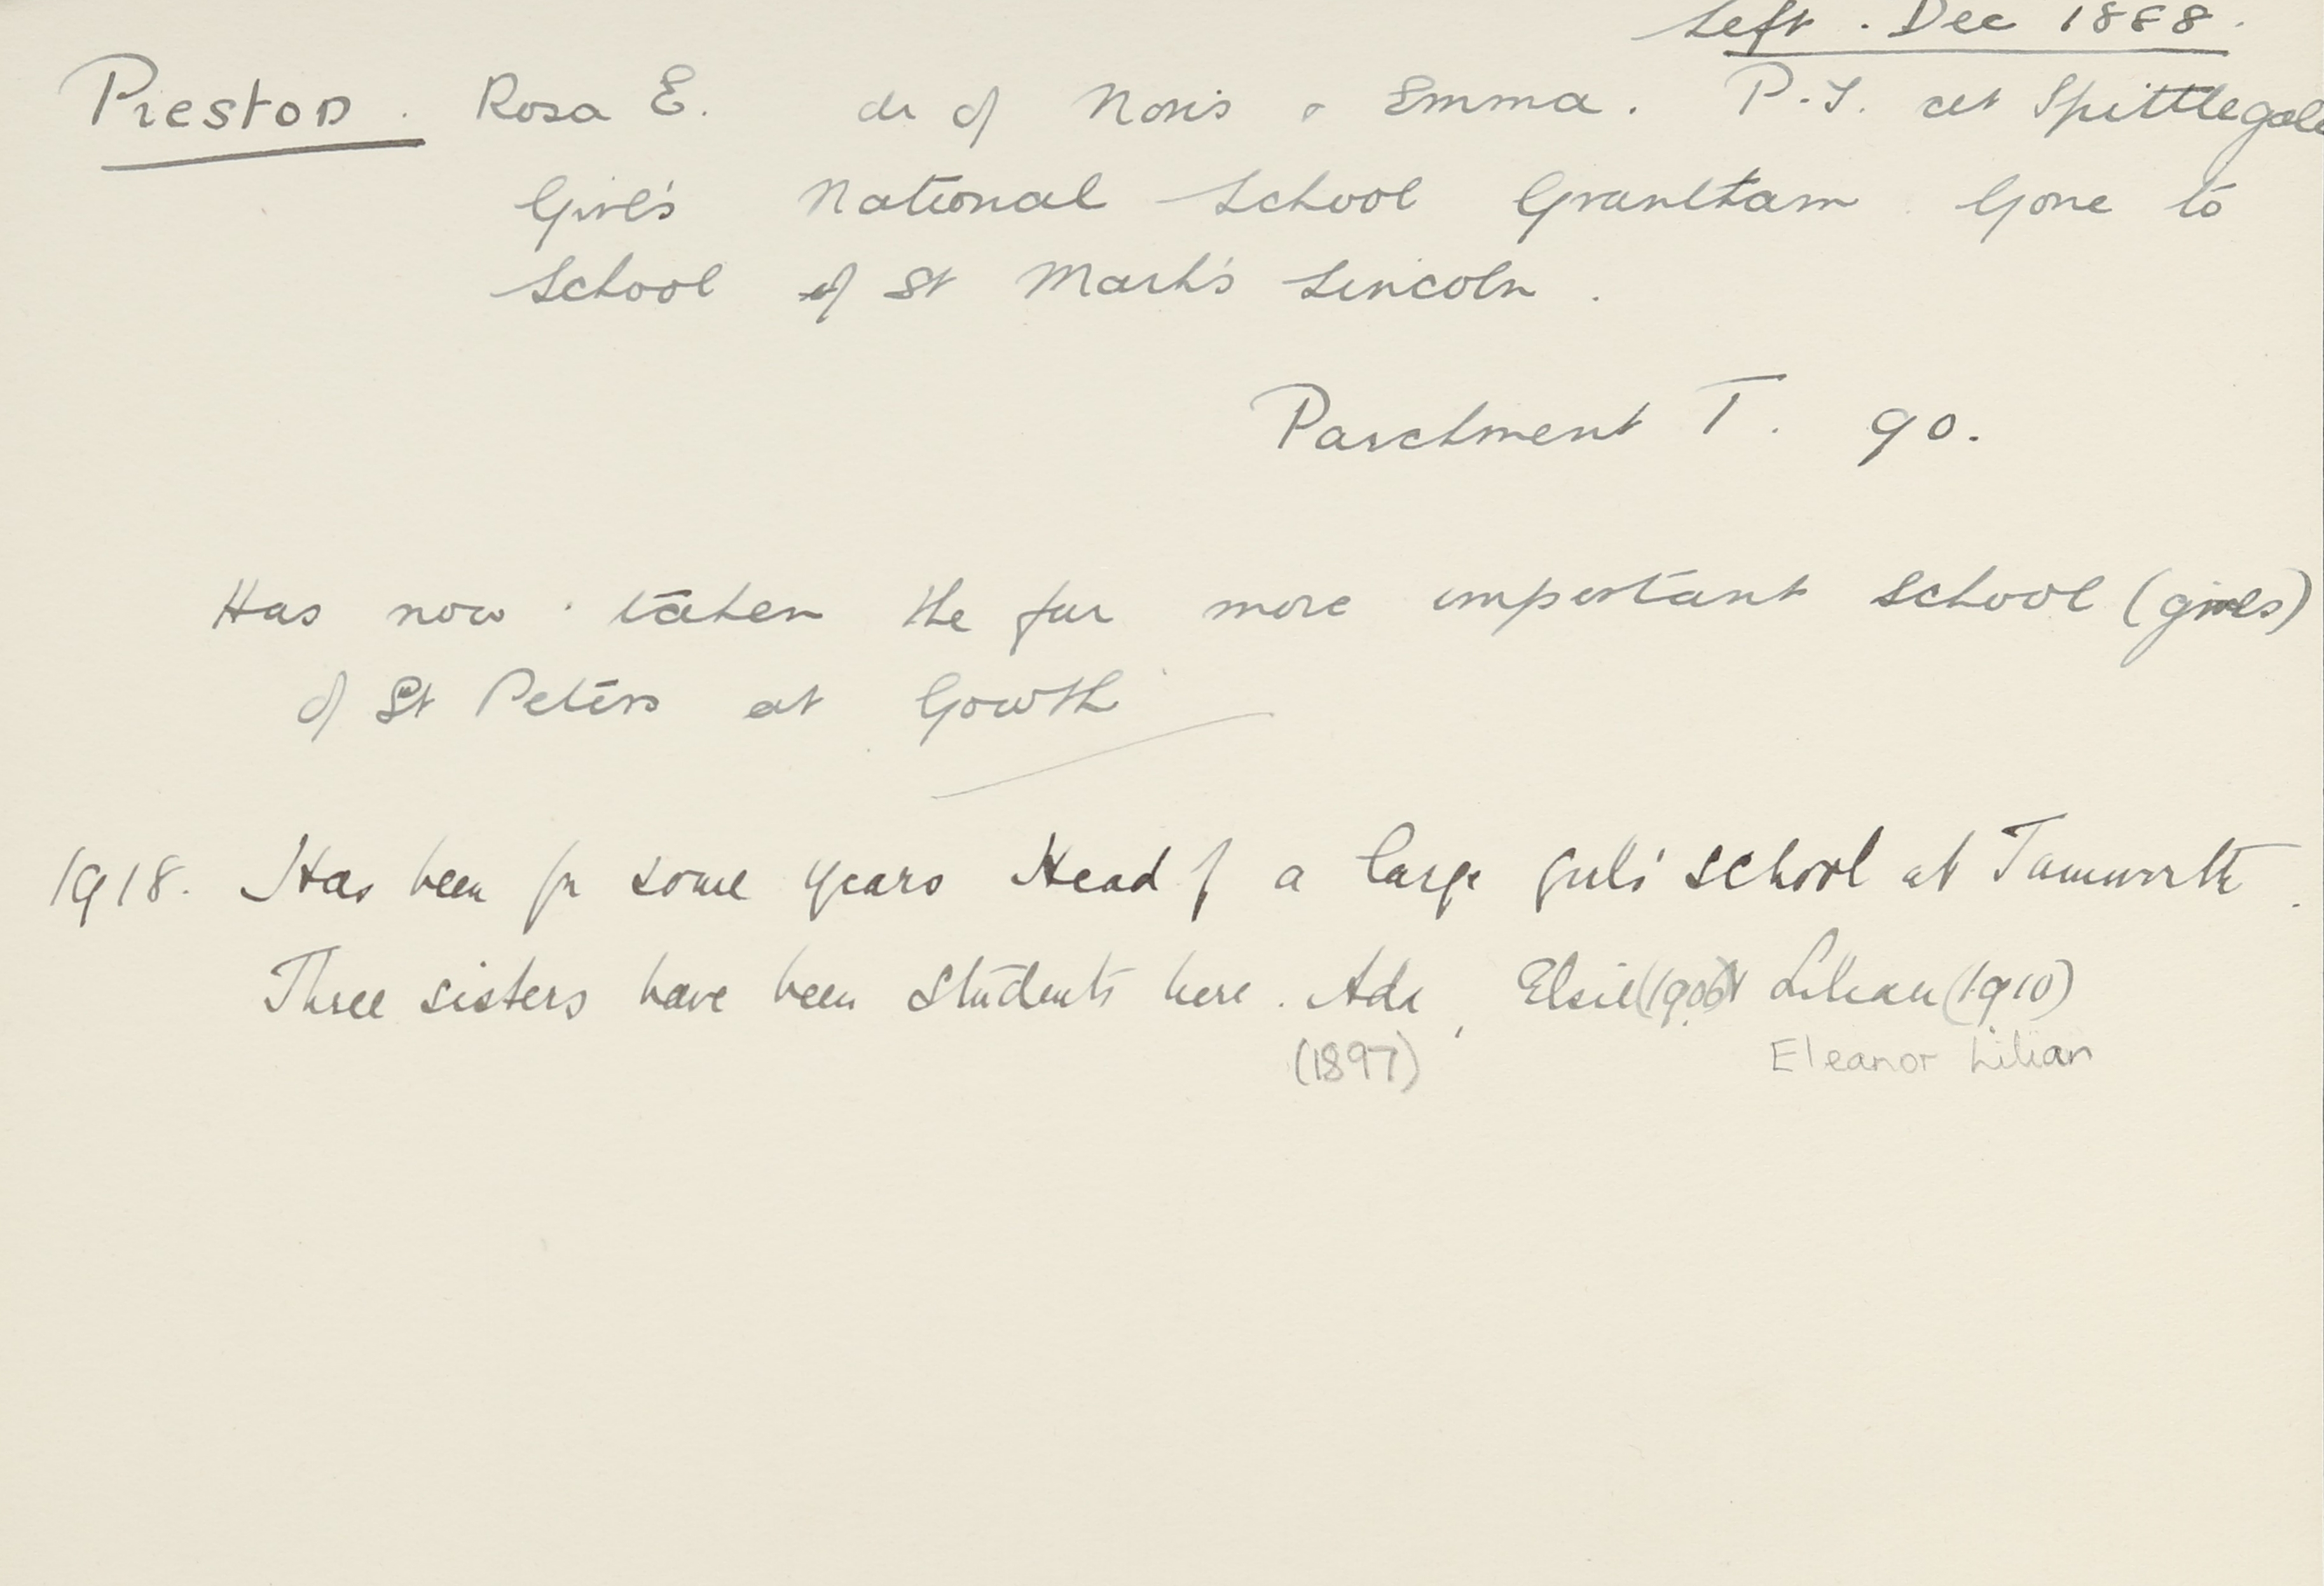 Left . Dec 1888.
Preston . Rosa E. dr of Noris & Emma. P.T. at Spittlegate
Girl's National School Grantham . Gone to
School of St Mark's Lincoln .
Parchment T. 90.
Has now taken the far more important school (girls)
of St Peters at Gowth
1918. Has been for some years Head of a large girls' school at Tamworth .
Three sisters have been students here . Ada , Elsie (1906) & Lilian (1910)
(1897) Eleanor Lilian